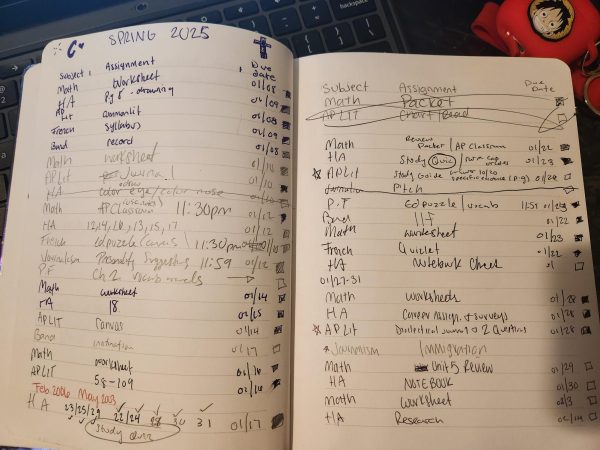 C SPRING 2025
Subject Assignment Due date
Math Worksheet 01/08
HA Pg 8 - drawing 01/09
AP Lit commonlit 01/08
French Syllabus 01/09
Band record 01/08
Math worksheet 01/10
APLit Journal 01/10
HA color eye/color nose
Math AP Classroom 11:30pm 01/12
HA 12,14,
French Edpuzzle/Canvas 11:30pm
Journalism Personality 11:59 01/12
P.F Ch 2 vocab
Math worksheet 01/14
HA 18 01/15
APLIT canvas 01/14
Band 01/17
Math worksheet 01/16
APLIT 58-109 01/16
Feb 2006 May 2003
HA 23/25/29 22/24 30 31 01/17
Study Quiz
Subject Assignment Due Date
Math Packet
APLIT Chart/Read
Math Review Packet/AP Classroom 01/22
HA Study Quiz 01/23
APLit Study Guide specific evidence (p.g)
Journalism Pitch
P.F Edpuzzle/vocab 11:59
Band 01/22
Math worksheet 01/23
French Quizlet 01/22
HA Notebook Check
01/27-31
Math Worksheets 01/28
HA Career Assign. & surveys 01/28
APLit Dialectical Journal & 2 Questions 01/28
Journalism Immigration
Math Unit 5 Review 01/29
HA NOTEBOOK 01/30
Math Worksheet
HA Research